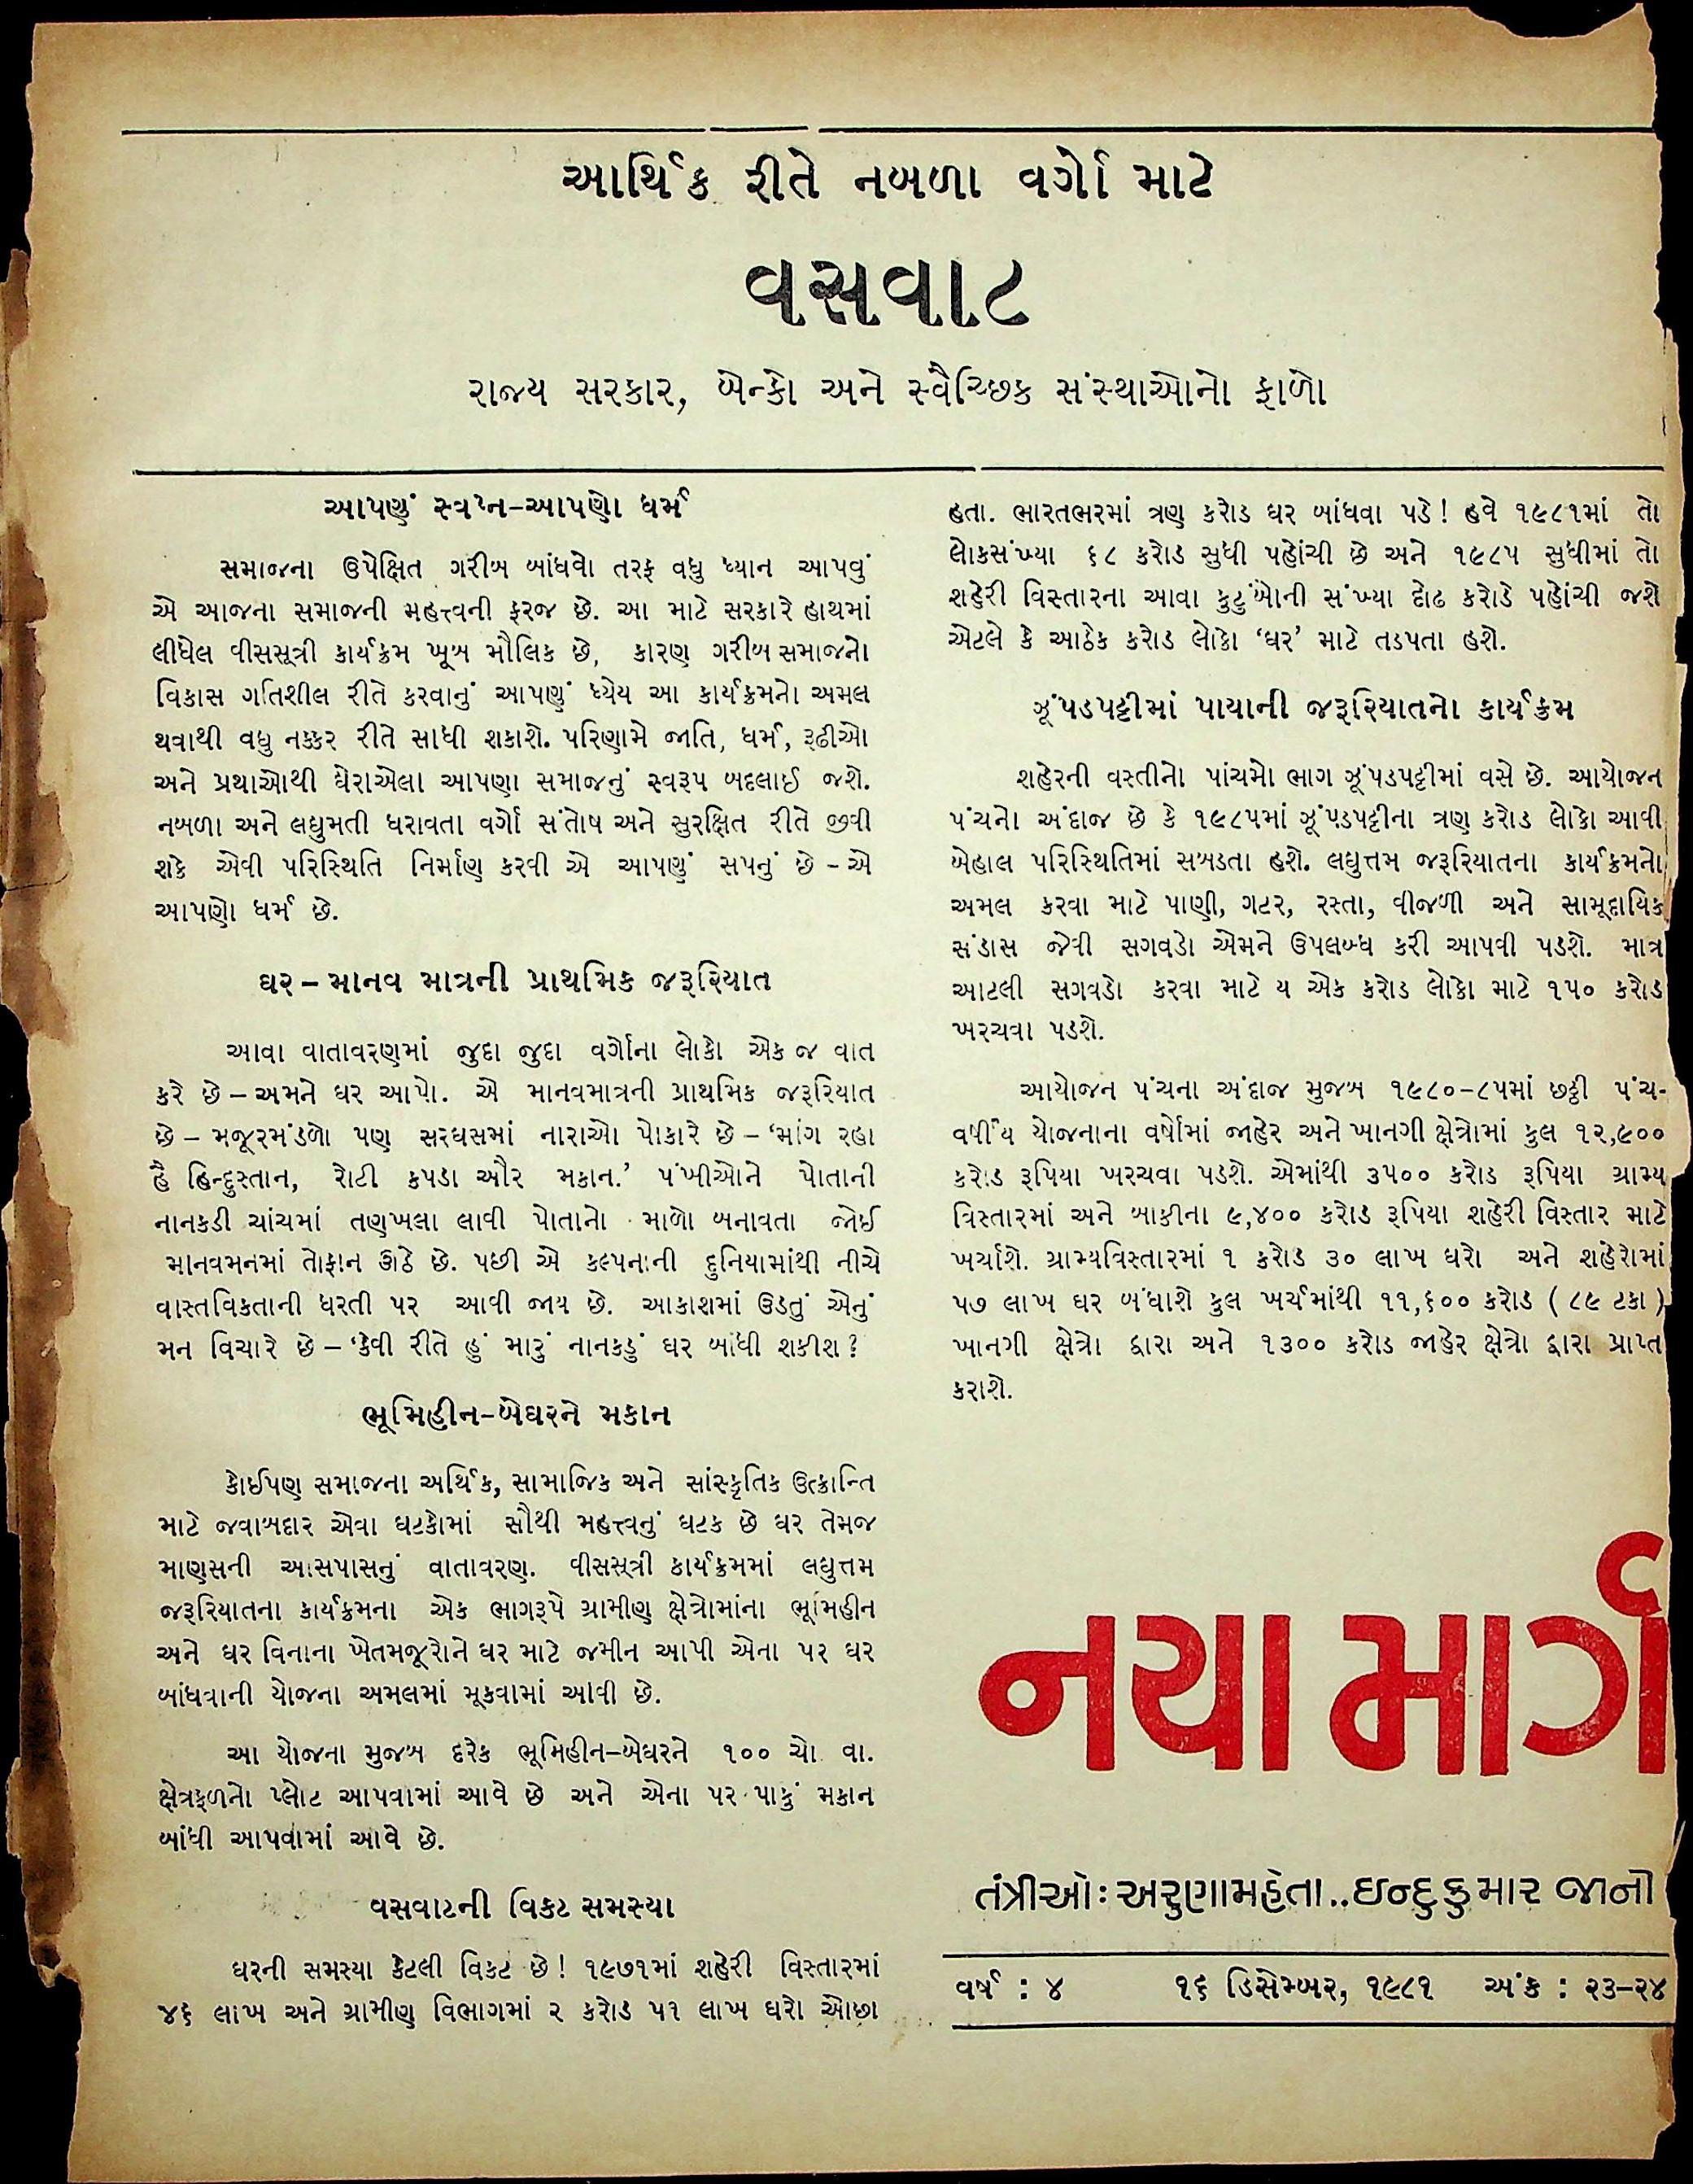 આર્થિક રીતે નબળા વર્ગો માટે
વસવાટ
રાજ્ય સરકાર, બેન્કો અને સ્વૈચ્છિક સંસ્થાઓનો ફાળો
આપણું સ્વપ્ન-આપણો ધર્મ
સમાજના ઉપેક્ષિત ગરીબ બાંધવો તરફ વધુ ધ્યાન આપવું
એ આજના સમાજની મહત્ત્વની ફરજ છે. આ માટે સરકારે હાથમાં
લીધેલ વીસસૂત્રી કાર્યક્રમ ખૂબ મૌલિક છે, કારણ ગરીબ સમાજનો
વિકાસ ગતિશીલ રીતે કરવાનું આપણું ધ્યેય આ કાર્યક્રમનો અમલ
થવાથી વધુ નક્કર રીતે સાધી શકાશે. પરિણામે જાતિ, ધર્મ, રૂઢીઓ
અને પ્રથાઓથી ઘેરાએલા આપણા સમાજનું સ્વરૂપ બદલાઈ જશે.
નબળા અને લઘુમતી ધરાવતા વર્ગો સંતોષ અને સુરક્ષિત રીતે જીવી
શકે એવી પરિસ્થિતિ નિર્માણ કરવી એ આપણું સપનું છે - એ
આપણો ધર્મ છે.
ઘર – માનવ માત્રની પ્રાથમિક જરૂરિયાત
આવા વાતાવરણમાં જુદા જુદા વર્ગોના લોકો એક જ વાત
કરે છે – અમને ઘર આપો. એ માનવમાત્રની પ્રાથમિક જરૂરિયાત
છે – મજૂરમંડળો પણ સરઘસમાં નારાઓ પોકારે છે – ‘માંગ રહા
હૈ હિન્દુસ્તાન, રોટી કપડા ઔર મકાન.’ પંખીઓને પોતાની
નાનકડી ચાંચમાં તણખલા લાવી પોતાનો માળો બનાવતા જોઈ
માનવમનમાં તોફાન ઊઠે છે. પછી એ કલ્પનાની દુનિયામાંથી નીચે
વાસ્તવિકતાની ધરતી પર આવી જાય છે. આકાશમાં ઉડતું એનું
મન વિચારે છે – ‘કેવી રીતે હું મારું નાનકડું ઘર બાંધી શકીશ ?
ભૂમિહીન-બેઘરને મકાન
કોઈપણ સમાજના અર્થિક, સામાજિક અને સાંસ્કૃતિક ઉત્ક્રાન્તિ
માટે જવાબદાર એવા ઘટકોમાં સૌથી મહત્ત્વનું ઘટક છે ઘર તેમજ
માણસની આસપાસનું વાતાવરણ. વીસસૂત્રી કાર્યક્રમમાં લઘુત્તમ
જરૂરિયાતના કાર્યક્રમના એક ભાગરૂપે ગ્રામીણ ક્ષેત્રોમાંના ભૂમિહીન
અને ઘર વિનાના ખેતમજૂરોને ઘર માટે જમીન આપી એના પર ઘર
બાંધવાની યોજના અમલમાં મૂકવામાં આવી છે.
આ યોજના મુજબ દરેક ભૂમિહીન-બેઘરને ૧૦૦ ચો. વા.
ક્ષેત્રફળનો પ્લોટ આપવામાં આવે છે અને એના પર પાકું મકાન
બાંધી આપવામાં આવે છે.
વસવાટની વિકટ સમસ્યા
ઘરની સમસ્યા કેટલી વિકટ છે ! ૧૯૭૧માં શહેરી વિસ્તારમાં
૪૬ લાખ અને ગ્રામીણ વિભાગમાં ૨ કરોડ ૫૧ લાખ ઘરો ઓછા
હતા. ભારતભરમાં ત્રણ કરોડ ઘર બાંધવા પડે ! હવે ૧૯૮૧માં તો
લોકસંખ્યા ૬૮ કરોડ સુધી પહોંચી છે અને ૧૯૮૫ સુધીમાં તો
શહેરી વિસ્તારના આવા કુટુંબોની સંખ્યા દોઢ કરોડે પહોંચી જશે
એટલે કે આઠેક કરોડ લોકો ‘ઘર’ માટે તડપતા હશે.
ઝૂંપડપટ્ટીમાં પાયાની જરૂરિયાતનો કાર્યક્રમ
શહેરની વસ્તીનો પાંચમો ભાગ ઝૂંપડપટ્ટીમાં વસે છે. આયોજન
પંચનો અંદાજ છે કે ૧૯૮૫માં ઝૂંપડપટ્ટીના ત્રણ કરોડ લોકો આવી
બેહાલ પરિસ્થિતિમાં સબડતા હશે. લઘુત્તમ જરૂરિયાતના કાર્યક્રમનો
અમલ કરવા માટે પાણી, ગટર, રસ્તા, વીજળી અને સામૂદાયિક
સંડાસ જેવી સગવડો એમને ઉપલબ્ધ કરી આપવી પડશે. માત્ર
આટલી સગવડો કરવા માટે ય એક કરોડ લોકો માટે ૧૫૦ કરોડ
ખરચવા પડશે.
આયોજન પંચના અંદાજ મુજબ ૧૯૮૦-૮૫માં છઠ્ઠી પંચ-
વર્ષીય યોજનાના વર્ષોમાં જાહેર અને ખાનગી ક્ષેત્રોમાં કુલ ૧૨,૯૦૦
કરોડ રૂપિયા ખરચવા પડશે. એમાંથી ૩૫૦૦ કરોડ રૂપિયા ગ્રામ્ય
વિસ્તારમાં અને બાકીના ૯,૪૦૦ કરોડ રૂપિયા શહેરી વિસ્તાર માટે
ખર્ચાશે. ગ્રામ્યવિસ્તારમાં ૧ કરોડ ૩૦ લાખ ઘરો અને શહેરોમાં
૫૭ લાખ ઘર બંધાશે કુલ ખર્ચમાંથી ૧૧,૬૦૦ કરોડ ( ૮૯ ટકા )
ખાનગી ક્ષેત્રો દ્વારા અને ૧૩૦૦ કરોડ જાહેર ક્ષેત્રો દ્વારા પ્રાપ્ત
કરાશે.
નયા માર્ગ
તંત્રીઓ : અરુણા મહેતા..ઇન્દુકુમાર જાની
વર્ષ : ૪ ૧૬ ડિસેમ્બર, ૧૯૮૧ અંક : ૨૩-૨૪